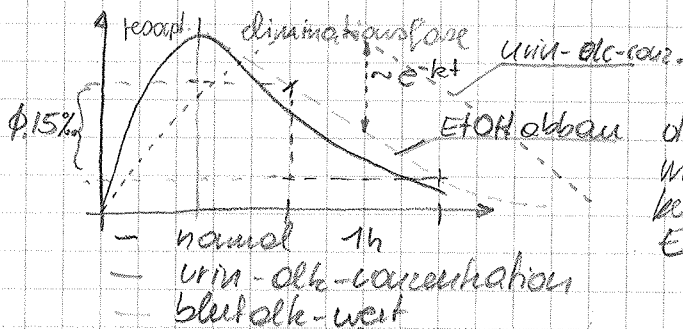 resorpt. eliminationsfase
urin-alc-conc.
~e^-kt
0,15‰
EtOH abbau
— normal 1h
— urin-alk-concentration
— blutalk-wert